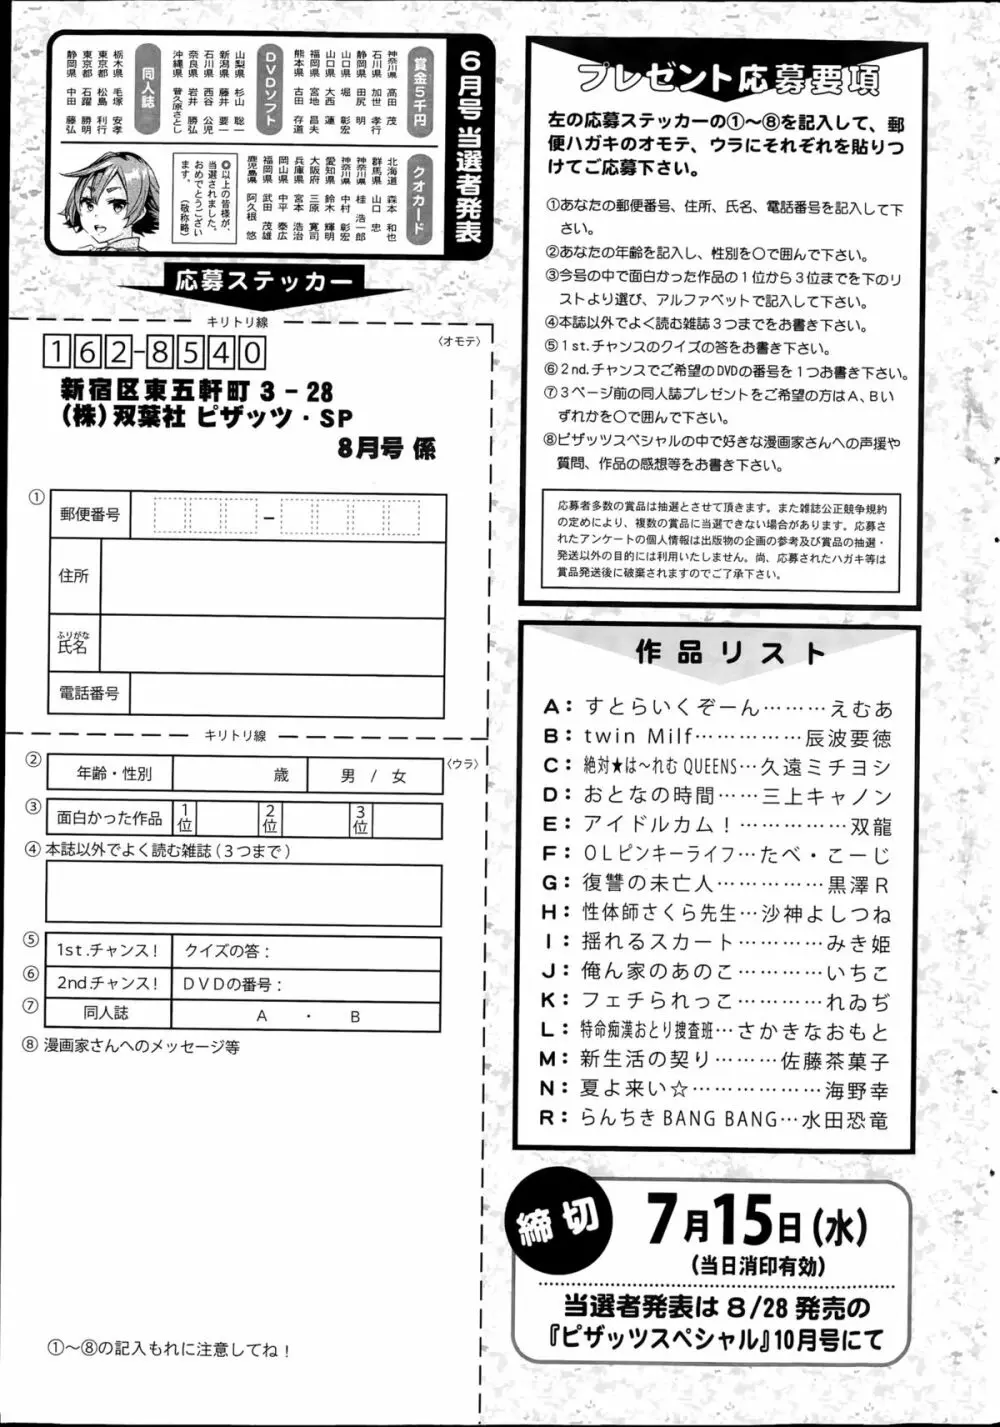 6月号 当選者発表
賞金5千円
神奈川県 高田 茂
石川県 加世 孝行
静岡県 田尻 明
山口県 堀 彰宏
山口県 大西 蓮
福岡県 宮地 昌夫
熊本県 古田 存道
DVDソフト
山梨県 杉山 聡一
新潟県 藤井 要一
石川県 西谷 公児
奈良県 岩井 勝弘
沖縄県 普久原さとし
同人誌
栃木県 毛塚 安孝
東京都 松島 利行
東京都 石躍 勝明
静岡県 中田 藤弘
クオカード
北海道 森本 和也
群馬県 山口 忠
神奈川県 桂 浩一郎
神奈川県 中村 彰宏
愛知県 鈴木 輝明
大阪府 三原 寛司
兵庫県 宮本 浩治
岡山県 中平 泰広
福岡県 武田 茂雄
鹿児島県 阿久根 悠
◎以上の皆様が、
当選されました。
おめでとうござい
ます。 (敬称略)
応募ステッカー
キリトリ線
〈オモテ〉
162-8540
新宿区東五軒町 3 - 28
(株) 双葉社 ピザッツ・SP
8月号 係
① 郵便番号
住所
ふりがな
氏名
電話番号
キリトリ線
〈ウラ〉
② 年齢・性別 歳 男 / 女
③ 面白かった作品 1位 2位 3位
④ 本誌以外でよく読む雑誌(3つまで)
⑤ 1st.チャンス! クイズの答:
⑥ 2ndチャンス! DVDの番号:
⑦ 同人誌 A ・ B
⑧ 漫画家さんへのメッセージ等
①〜⑧の記入もれに注意してね!
プレゼント応募要項
左の応募ステッカーの①〜⑧を記入して、郵
便ハガキのオモテ、ウラにそれぞれを貼りつ
けてご応募下さい。
①あなたの郵便番号、住所、氏名、電話番号を記入して下
さい。
②あなたの年齢を記入し、性別を○で囲んで下さい。
③今号の中で面白かった作品の1位から3位までを下のリ
ストより選び、アルファベットで記入して下さい。
④本誌以外でよく読む雑誌3つまでをお書き下さい。
⑤1st.チャンスのクイズの答をお書き下さい。
⑥2nd.チャンスでご希望のDVDの番号を1つお書き下さい。
⑦3ページ前の同人誌プレゼントをご希望の方はA、Bい
ずれかを○で囲んで下さい。
⑧ピザッツスペシャルの中で好きな漫画家さんへの声援や
質問、作品の感想等をお書き下さい。
応募者多数の賞品は抽選とさせて頂きます。また雑誌公正競争規約
の定めにより、複数の賞品に当選できない場合があります。応募さ
れたアンケートの個人情報は出版物の企画の参考及び賞品の抽選・
発送以外の目的には利用いたしません。尚、応募されたハガキ等は
賞品発送後に破棄されますのでご了承下さい。
作品リスト
A:すとらいくぞーん………えむあ
B:twin Milf……………辰波要徳
C:絶対★は〜れむ QUEENS…久遠ミチヨシ
D:おとなの時間……三上キャノン
E:アイドルカム!…………双龍
F:OLピンキーライフ…たべ・こーじ
G:復讐の未亡人……………黒澤R
H:性体師さくら先生…沙神よしつね
I:揺れるスカート…………みき姫
J:俺ん家のあのこ…………いちこ
K:フェチられっこ…………れゐぢ
L:特命痴漢おとり捜査班…さかきなおもと
M:新生活の契り………佐藤茶菓子
N:夏よ来い☆………………海野幸
R:らんちき BANG BANG…水田恐竜
締切
7月15日(水)
(当日消印有効)
当選者発表は 8/28 発売の
『ピザッツスペシャル』10月号にて